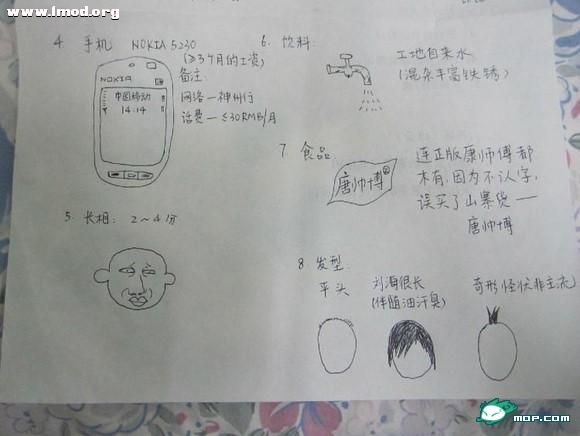 www.lmod.org
4. 手机 NOKIA 5230
(≥3个月的工资)
备注:
网络—神州行
话费—≤30RMB/月
NOKIA
中国移动
14:14
5. 长相: 2~4分
6. 饮料
工地自来水
(混杂丰富铁锈)
7. 食品
唐帅博®
连正版康师傅都
木有,因为不认字,
误买了山寨货——
唐帅博
8 发型
平头
刘海很长
(伴随油汗臭)
奇形怪状非主流
MOP.COM